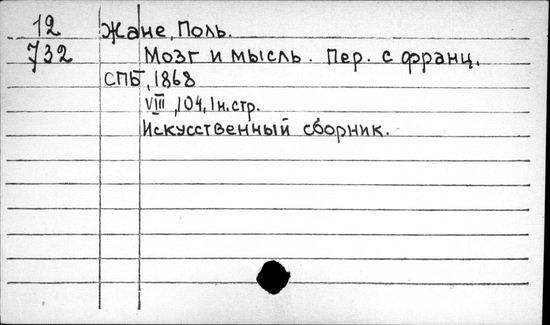 12 Жане, Поль.
732 Мозг и мысль. Пер. с франц.
СПБ, 1868
VIII, 104, 1 н. стр.
Искусственный сборник.